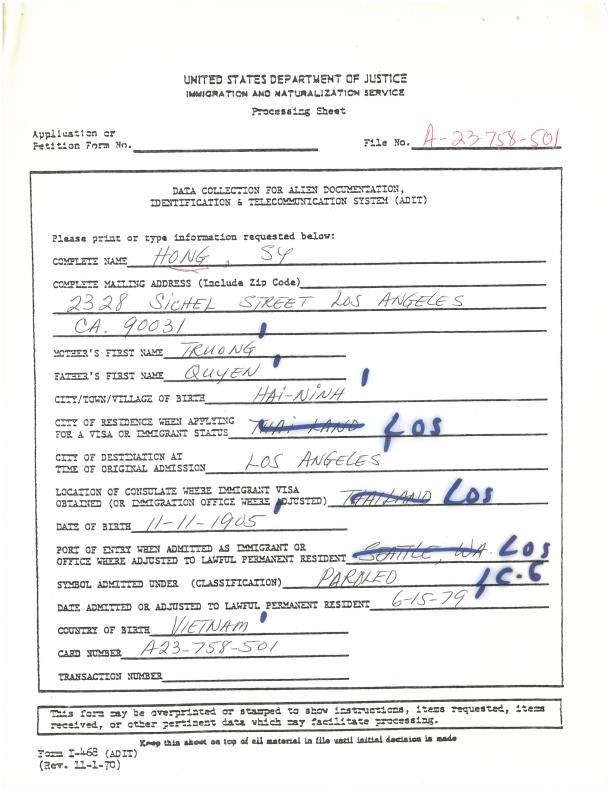 UNITED STATES DEPARTMENT OF JUSTICE
IMMIGRATION AND NATURALIZATION SERVICE
Processing Sheet
Application or
Petition Form No.
File No. A-23-758-501
DATA COLLECTION FOR ALIEN DOCUMENTATION,
IDENTIFICATION & TELECOMMUNICATION SYSTEM (ADIT)
Please print or type information requested below:
COMPLETE NAME HONG, SY
COMPLETE MAILING ADDRESS (Include Zip Code)
2328 SICHEL STREET LOS ANGELES
CA. 90031
MOTHER'S FIRST NAME TRUONG
FATHER'S FIRST NAME QUYEN
CITY/TOWN/VILLAGE OF BIRTH HAI-NINH
CITY OF RESIDENCE WHEN APPLYING
FOR A VISA OR IMMIGRANT STATUS THAI LAND LOS
CITY OF DESTINATION AT
TIME OF ORIGINAL ADMISSION LOS ANGELES
LOCATION OF CONSULATE WHERE IMMIGRANT VISA
OBTAINED (OR IMMIGRATION OFFICE WHERE ADJUSTED) THAILAND LOS
DATE OF BIRTH 11-11-1905
PORT OF ENTRY WHEN ADMITTED AS IMMIGRANT OR
OFFICE WHERE ADJUSTED TO LAWFUL PERMANENT RESIDENT SEATTLE, WA. LOS
SYMBOL ADMITTED UNDER (CLASSIFICATION) PARALED IC-6
DATE ADMITTED OR ADJUSTED TO LAWFUL PERMANENT RESIDENT 6-15-79
COUNTRY OF BIRTH VIETNAM
CARD NUMBER A23-758-501
TRANSACTION NUMBER
This form may be overprinted or stamped to show instructions, items requested, items
received, or other pertinent data which may facilitate processing.
Keep this sheet on top of all material in file until initial decision is made
Form I-468 (ADIT)
(Rev. 11-1-70)